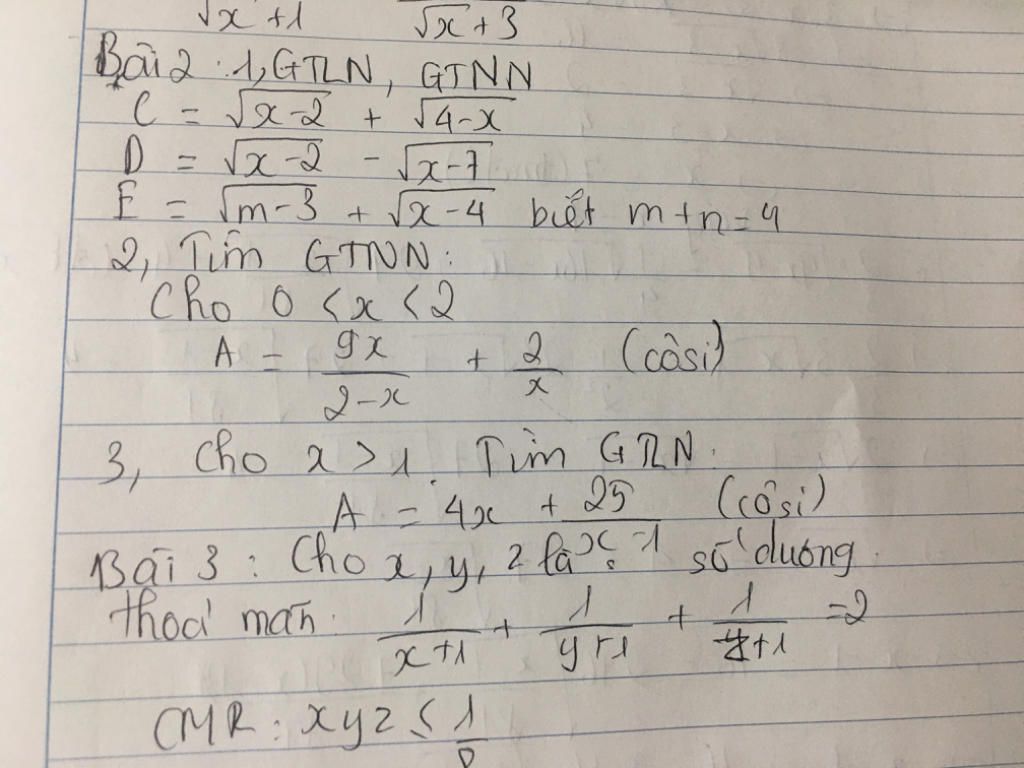 √x +1 √x +3
Bài 2 : 1, GTLN, GTNN
C = √x-2 + √4-x
D = √x-2 - √x-7
E = √m-3 + √x-4 biết m+n=4
2, Tìm GTNN:
Cho 0 < x < 2
A = 9x/2-x + 2/x (côsi)
3, Cho x > 1. Tìm GTLN.
A = 4x + 25/x-1 (côsi)
Bài 3 : Cho x, y, z là số dương
thoả mãn: 1/x+1 + 1/y+1 + 1/z+1 =2
CMR : xyz ≤ 1/8